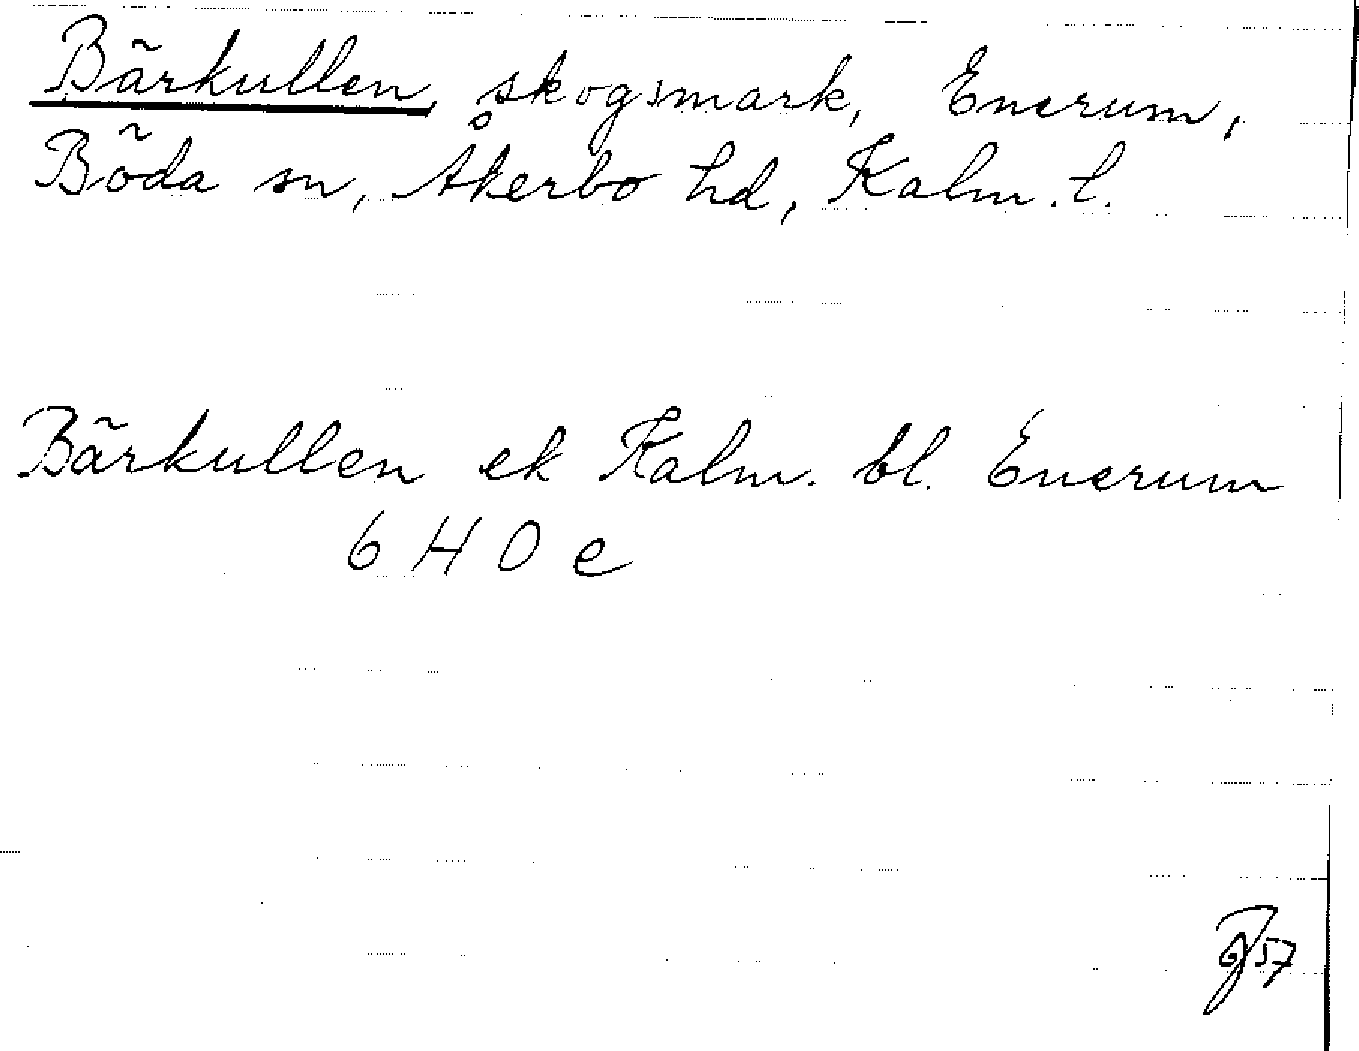 Bärkullen, skogsmark, Enerum,
Böda sn, Åkerbo hd, Kalm. l.
Bärkullen ek Kalm. bl. Enerum
6 H 0 e
57